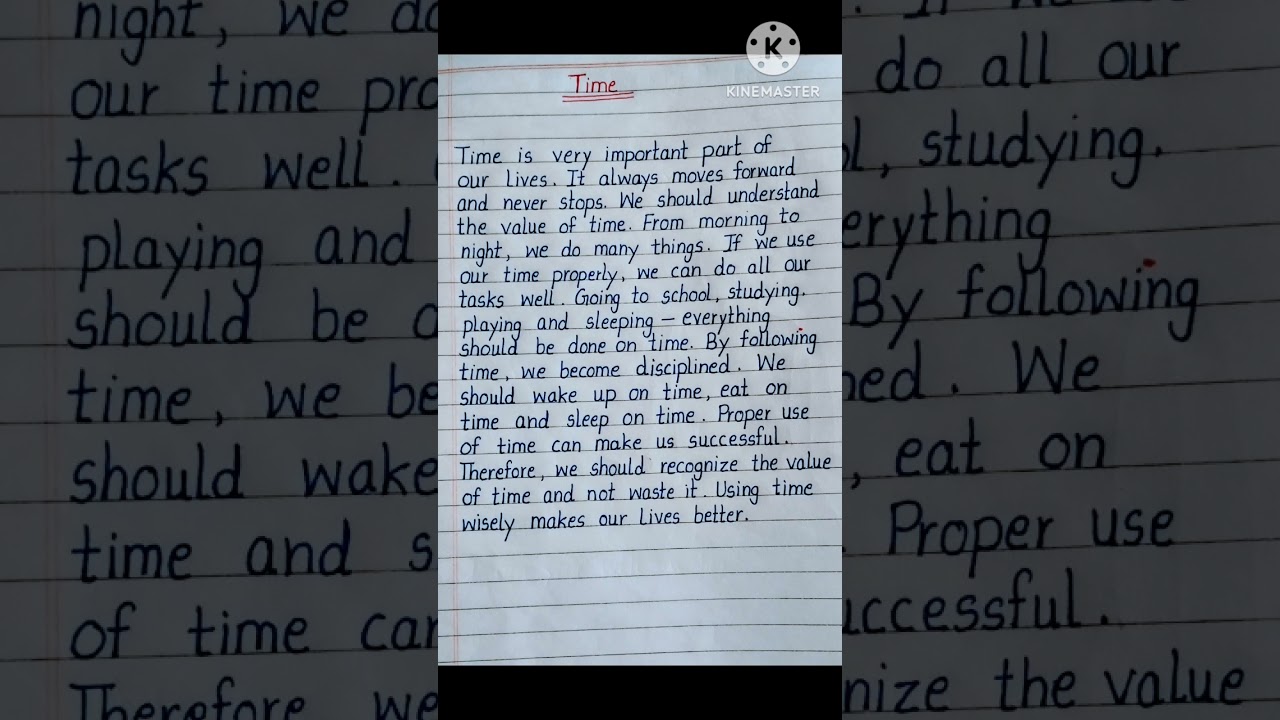 K
KINEMASTER
Time
Time is very important part of
our lives. It always moves forward
and never stops. We should understand
the value of time. From morning to
night, we do many things. If we use
our time properly, we can do all our
tasks well. Going to school, studying.
playing and sleeping – everything
should be done on time. By following
time, we become disciplined. We
should wake up on time, eat on
time and sleep on time. Proper use
of time can make us successful.
Therefore, we should recognize the value
of time and not waste it. Using time
wisely makes our lives better.